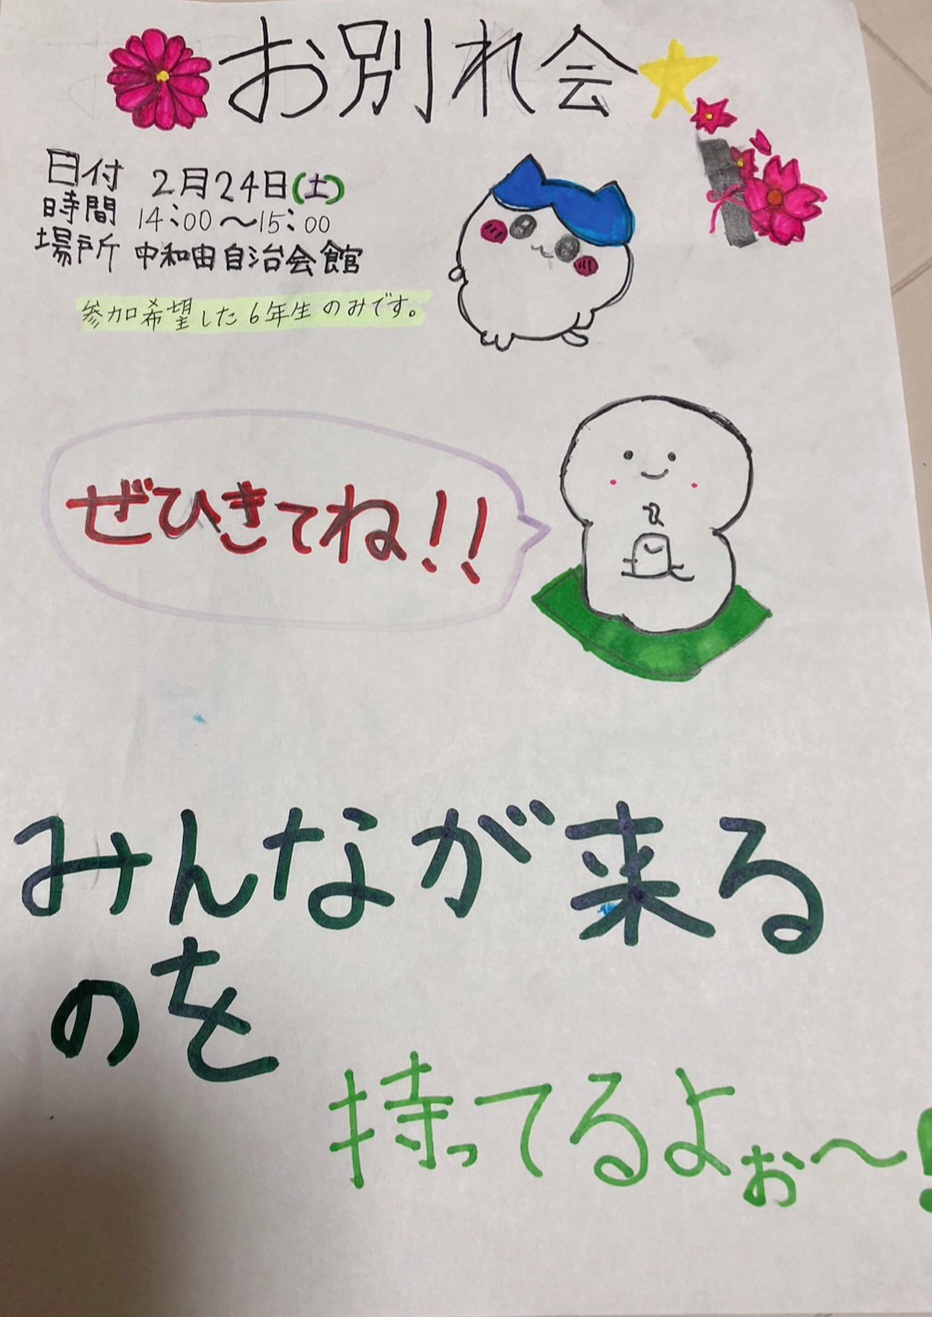 お別れ会
日付 2月24日(土)
時間 14:00〜15:00
場所 中和田自治会館
参加希望した6年生のみです。
ぜひきてね!!
みんなが来る
のを
持ってるよぉ〜!